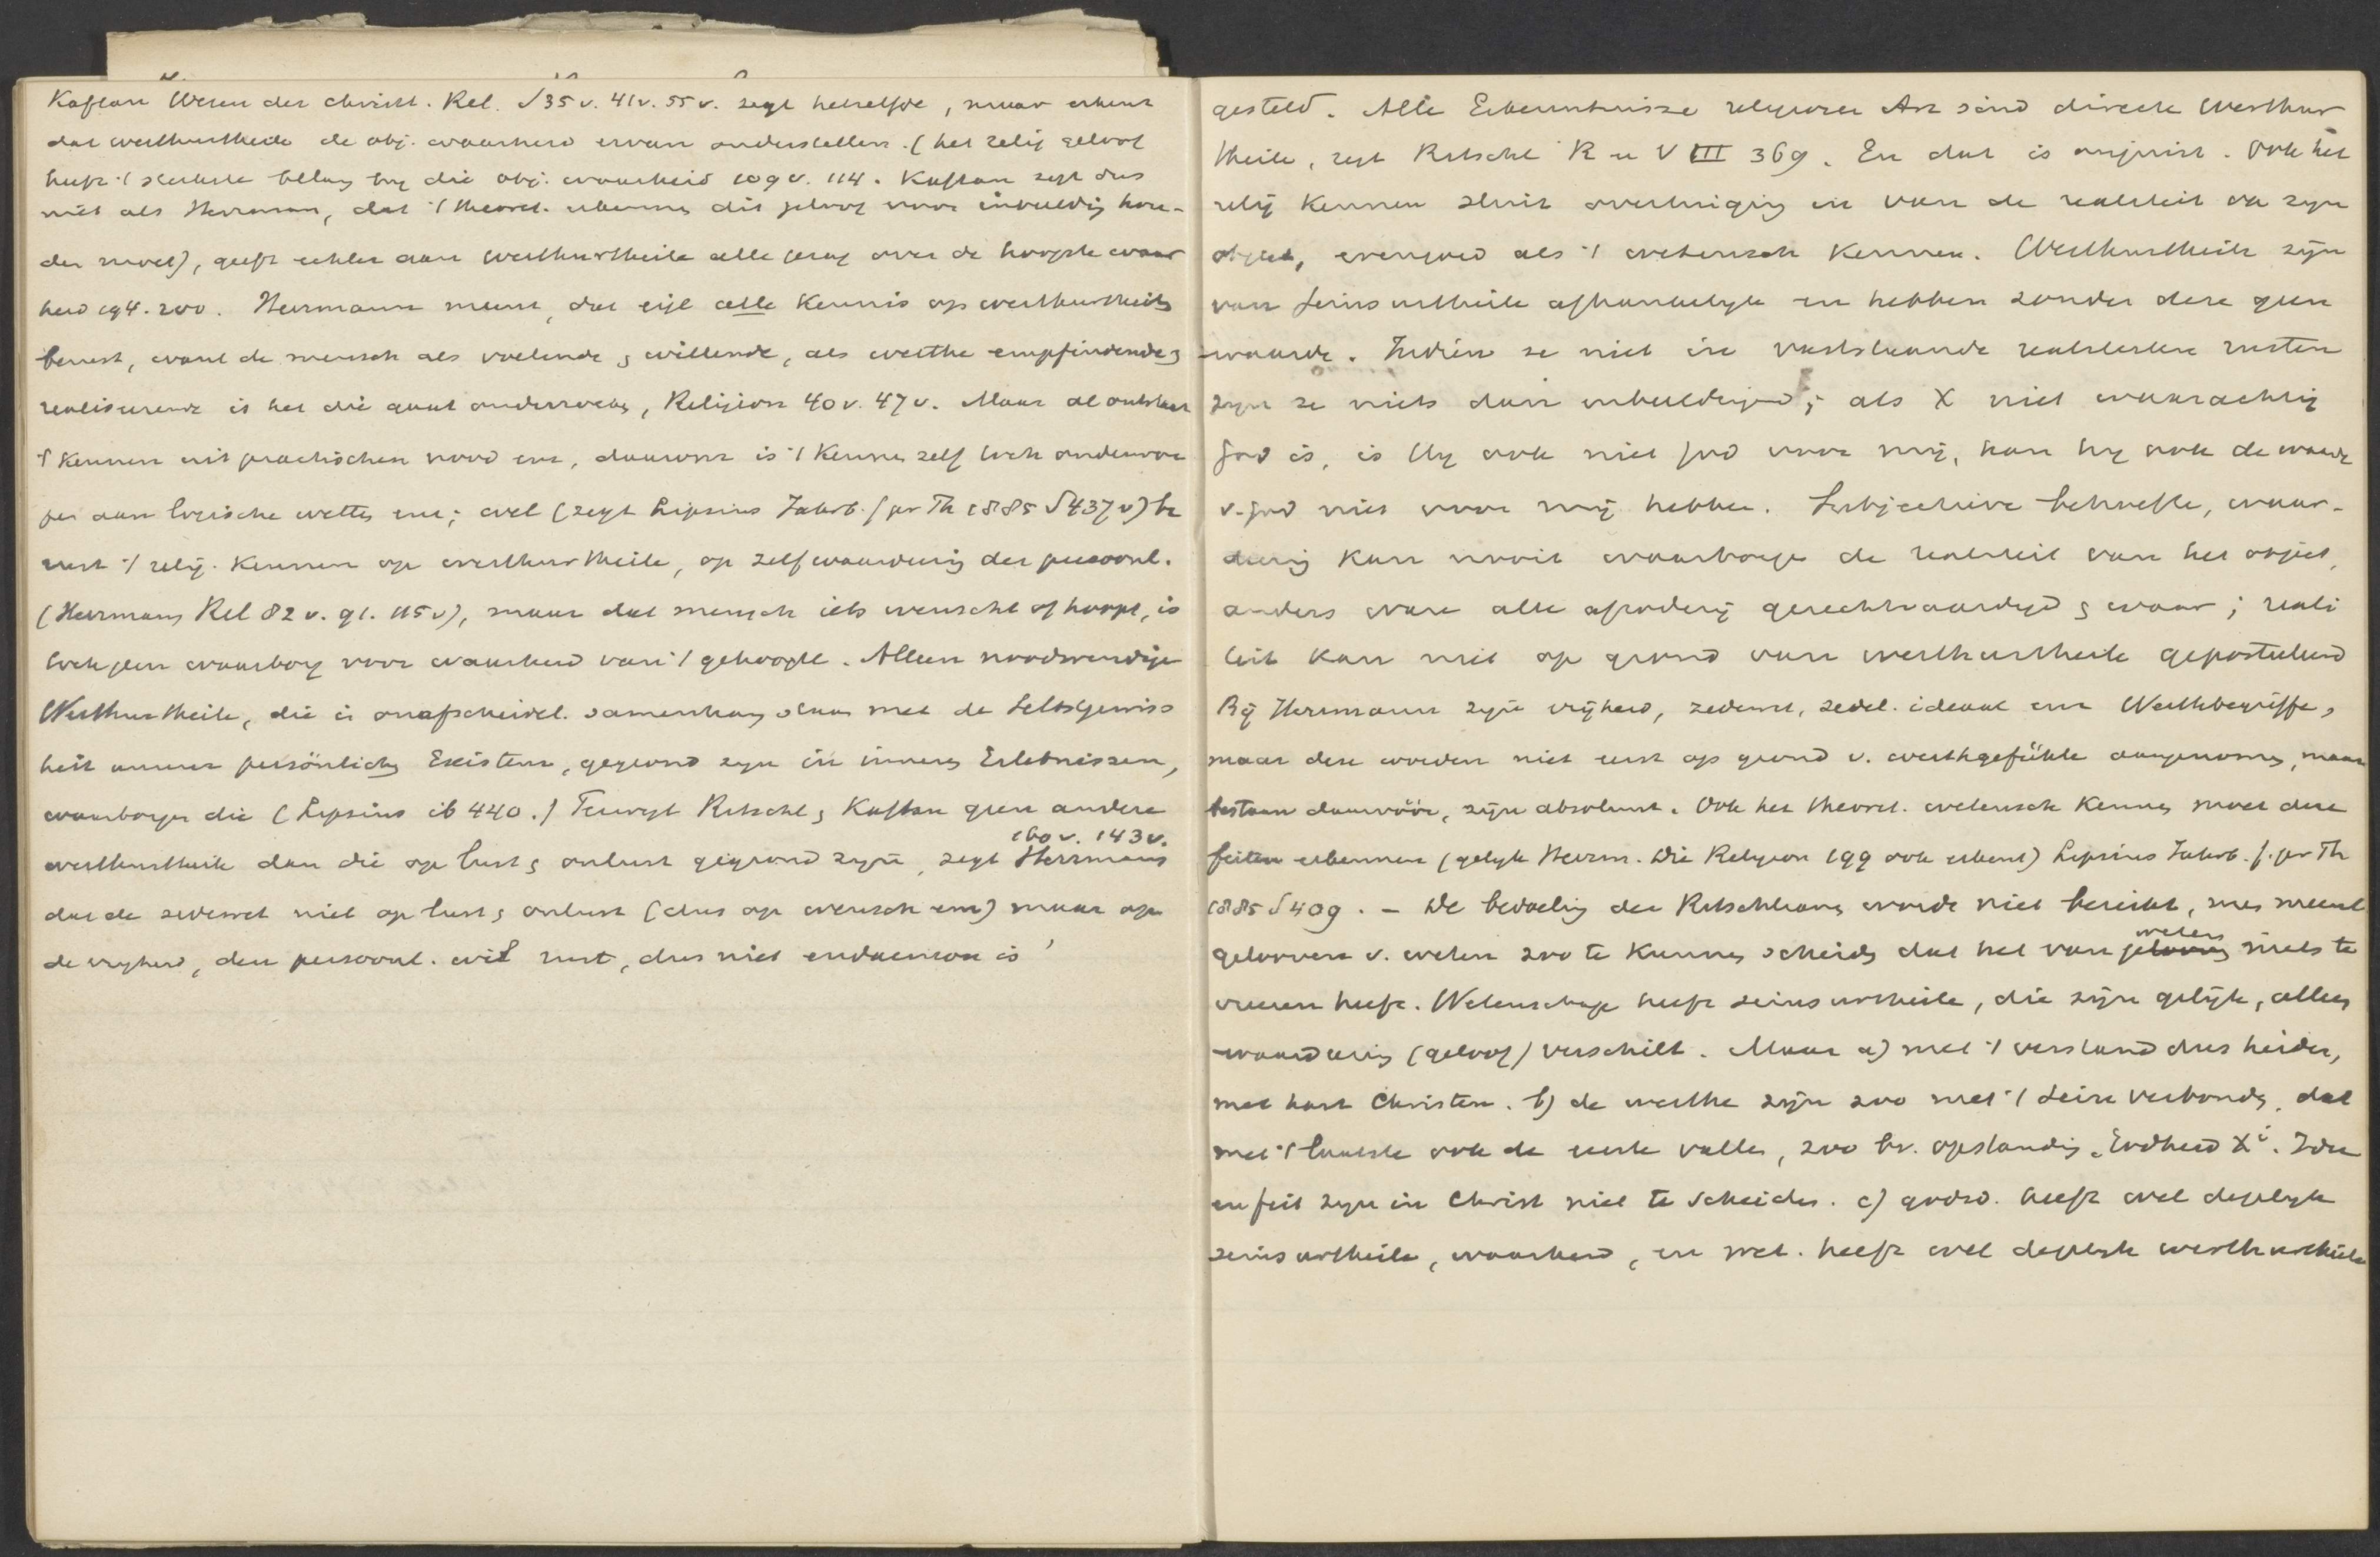 Kaftan Wesen der christ. Rel. S 35 v. 41v. 55 v. zegt hetzelfde, maar erkent
dat werthurtheile de obj. waarheid ervan onderstellen. (het relig geloof
heeft 't sterkste belang bij die obj. waarheid 109 v. 114. Kaftan zegt dus
niet als Herrmann, dat 't theoret. erkennen dit geloof voor inbeelding hou-
den moet), geeft echter aan werthurtheile alle gezag over de hoogste waar
heid 194. 200. Herrmann meent, dat eigl alle kennis op werthurtheile
berust, want de mensch als voelende & willende, als werthe empfindende &
realiseerende is het die gaat onderzoeken, Religion 40 v. 47 v. Maar al ontstaat
't kennen uit practischen nood enz, daarom is 't kennen zelf toch onderwor
pen aan logische wetten enz; wel (zegt Lipsius Jahrb. f pr Th 1885 S 437 v) be
rust 't relig. kennen op werthurtheile, op zelfwaardering der persoonl.
(Herrmann Rel 82 v. 91. 115 v), maar dat mensch iets wenscht of hoopt, is
toch geen waarborg voor waarheid van 't gehoopte. Alleen noodwendige
Werthurtheile, die in onafscheidel. samenhang staan met de Selbstgewiss
heit unserer persönlichen Existenz, gegrond zijn in inneren Erlebnissen,
waarborgen die (Lipsius ib 440.) Terwijl Ritschl & Kaftan geen andere
160 v. 143 v.
werthurtheile dan die op lust & onlust gegrond zijn, zegt Herrmann
dat de zedewet niet op lust & onlust (dus op wensch enz) maar op
de vrijheid, den persoonl. wil rust, dus niet endaemon is
gesteld. Alle Erkenntnisse religiöser Art sind directe Werthur
theile, zegt Ritschl R u V III 369. En dat is onjuist. Ook het
relig kennen sluit overtuiging in van de realiteit van zijn
object, evengoed als 't wetensch kennen. Werthurtheile zijn
van Seinsurtheile afhankelijk en hebben zonder deze geen
waarde. Indien ze niet in vaststaande realiteiten rusten
zijn ze niets dan inbeelding; als X niet waarachtig
God is, is Hij ook niet God voor mij, kan hij ook de waarde
v. God niet voor mij hebben. Subjectieve behoefte, waar-
deering kan nooit waarborgen de realiteit van het object,
anders ware alle afgoderij gerechtvaardigd & waar; reali
teit kan niet op grond van werthurtheile gepostuleerd
Bij Herrmann zijn vrijheid, zedewet, zedel. ideaal enz Werthbegriffe,
maar deze worden niet eerst op grond v. werthgefühle aangenomen, maar
bestaan daarvóór, zijn absoluut. Ook het theoret. wetensch kennen moet deze
feiten erkennen (gelijk Herrm. Die Religion 199 ook erkent) Lipsius Jahrb. f. pr Th
1885 S 409. – De bedoeling der Ritschlianen wordt niet bereikt, men meent
weten
gelooven v. weten zoo te kunnen scheiden dat het van gelooven niets te
vreezen heeft. Wetenschap heeft seinsurtheile, die zijn gelijk, alleen
waardeering (geloof) verschilt. Maar a) met 't verstand dus heiden,
met hart Christen. b) de werthe zijn zoo met 't Sein verbonden, dat
met 't laatste ook de eerste vallen, zoo bv. opstanding, Godheid Xi. Idee
en feit zijn in Christ niet te scheiden. c) godsd. heeft wel degelijk
seinsurtheile, waarheid, en wet. heeft wel degelijk werthurtheile